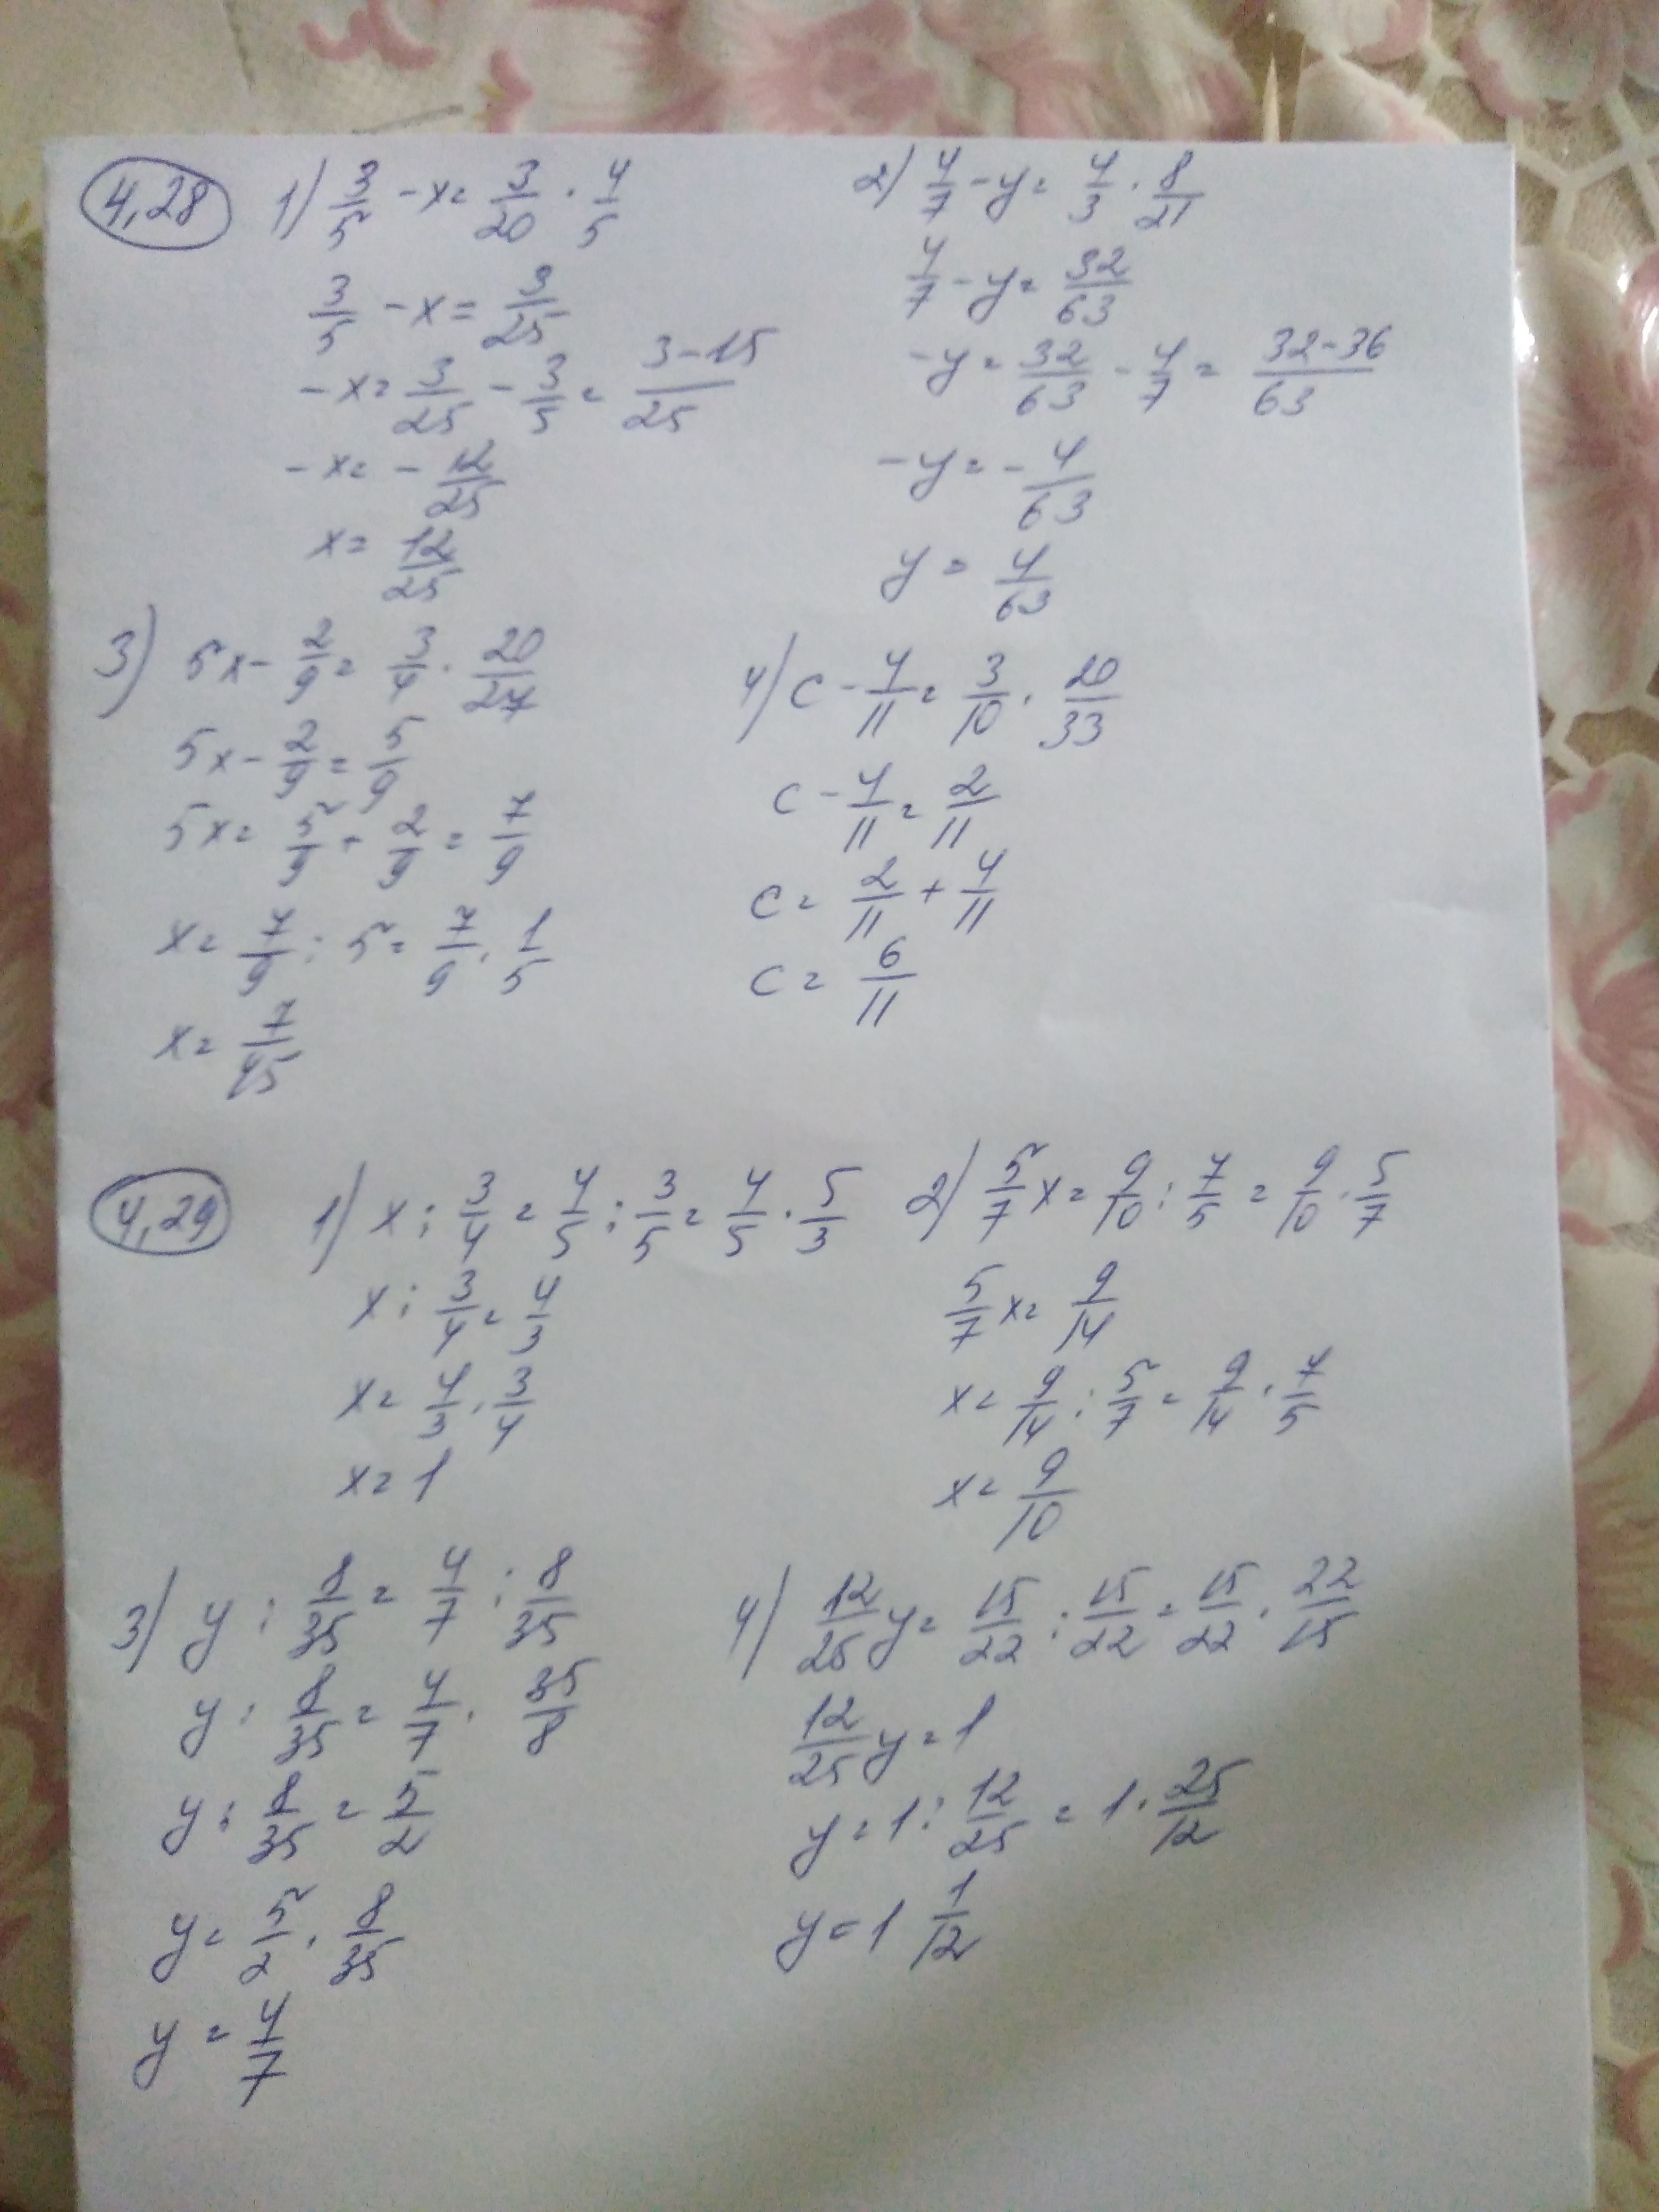 4,28
1) 3/5 - x = 3/20 · 4/5
3/5 - x = 3/25
-x = 3/25 - 3/5 = (3-15)/25
-x = - 12/25
x = 12/25
2) 4/7 - y = 4/3 · 8/21
4/7 - y = 32/63
-y = 32/63 - 4/7 = (32-36)/63
-y = - 4/63
y = 4/63
3) 5x - 2/9 = 3/4 · 20/27
5x - 2/9 = 5/9
5x = 5/9 + 2/9 = 7/9
x = 7/9 : 5 = 7/9 · 1/5
x = 7/45
4) c - 4/11 = 3/10 · 20/33
c - 4/11 = 2/11
c = 2/11 + 4/11
c = 6/11
4,29
1) x : 3/4 = 4/5 : 3/5 = 4/5 · 5/3
x : 3/4 = 4/3
x = 4/3 · 3/4
x = 1
2) 5/7 x = 9/10 : 7/5 = 9/10 · 5/7
5/7 x = 9/14
x = 9/14 : 5/7 = 9/14 · 7/5
x = 9/10
3) y : 8/35 = 4/7 : 8/35
y : 8/35 = 4/7 · 35/8
y : 8/35 = 5/2
y = 5/2 · 8/35
y = 4/7
4) 12/25 y = 15/22 : 15/22 = 15/22 · 22/15
12/25 y = 1
y = 1 : 12/25 = 1 · 25/12
y = 1 1/12